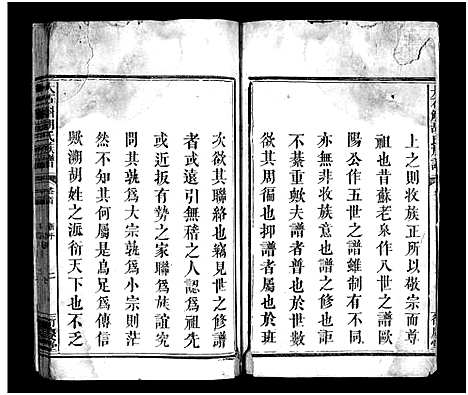 上之則收族正所以敬宗而尊
祖也昔蘇老泉作八世之譜歐
陽公作五世之譜雖制有不同
亦無非收族意也譜之所係豈
不綦重歟夫譜者普也於世數
欲其周徧也抑譜者也於班
次欲其聯絡也竊見世之修譜
者或遠引無稽之人認為祖先
或近扳有勢之家聯為族誼
問其孰為大宗孰為小宗則茫
然不知其何屬是烏足為傳信
歟溯胡姓之派衍天下也不乏